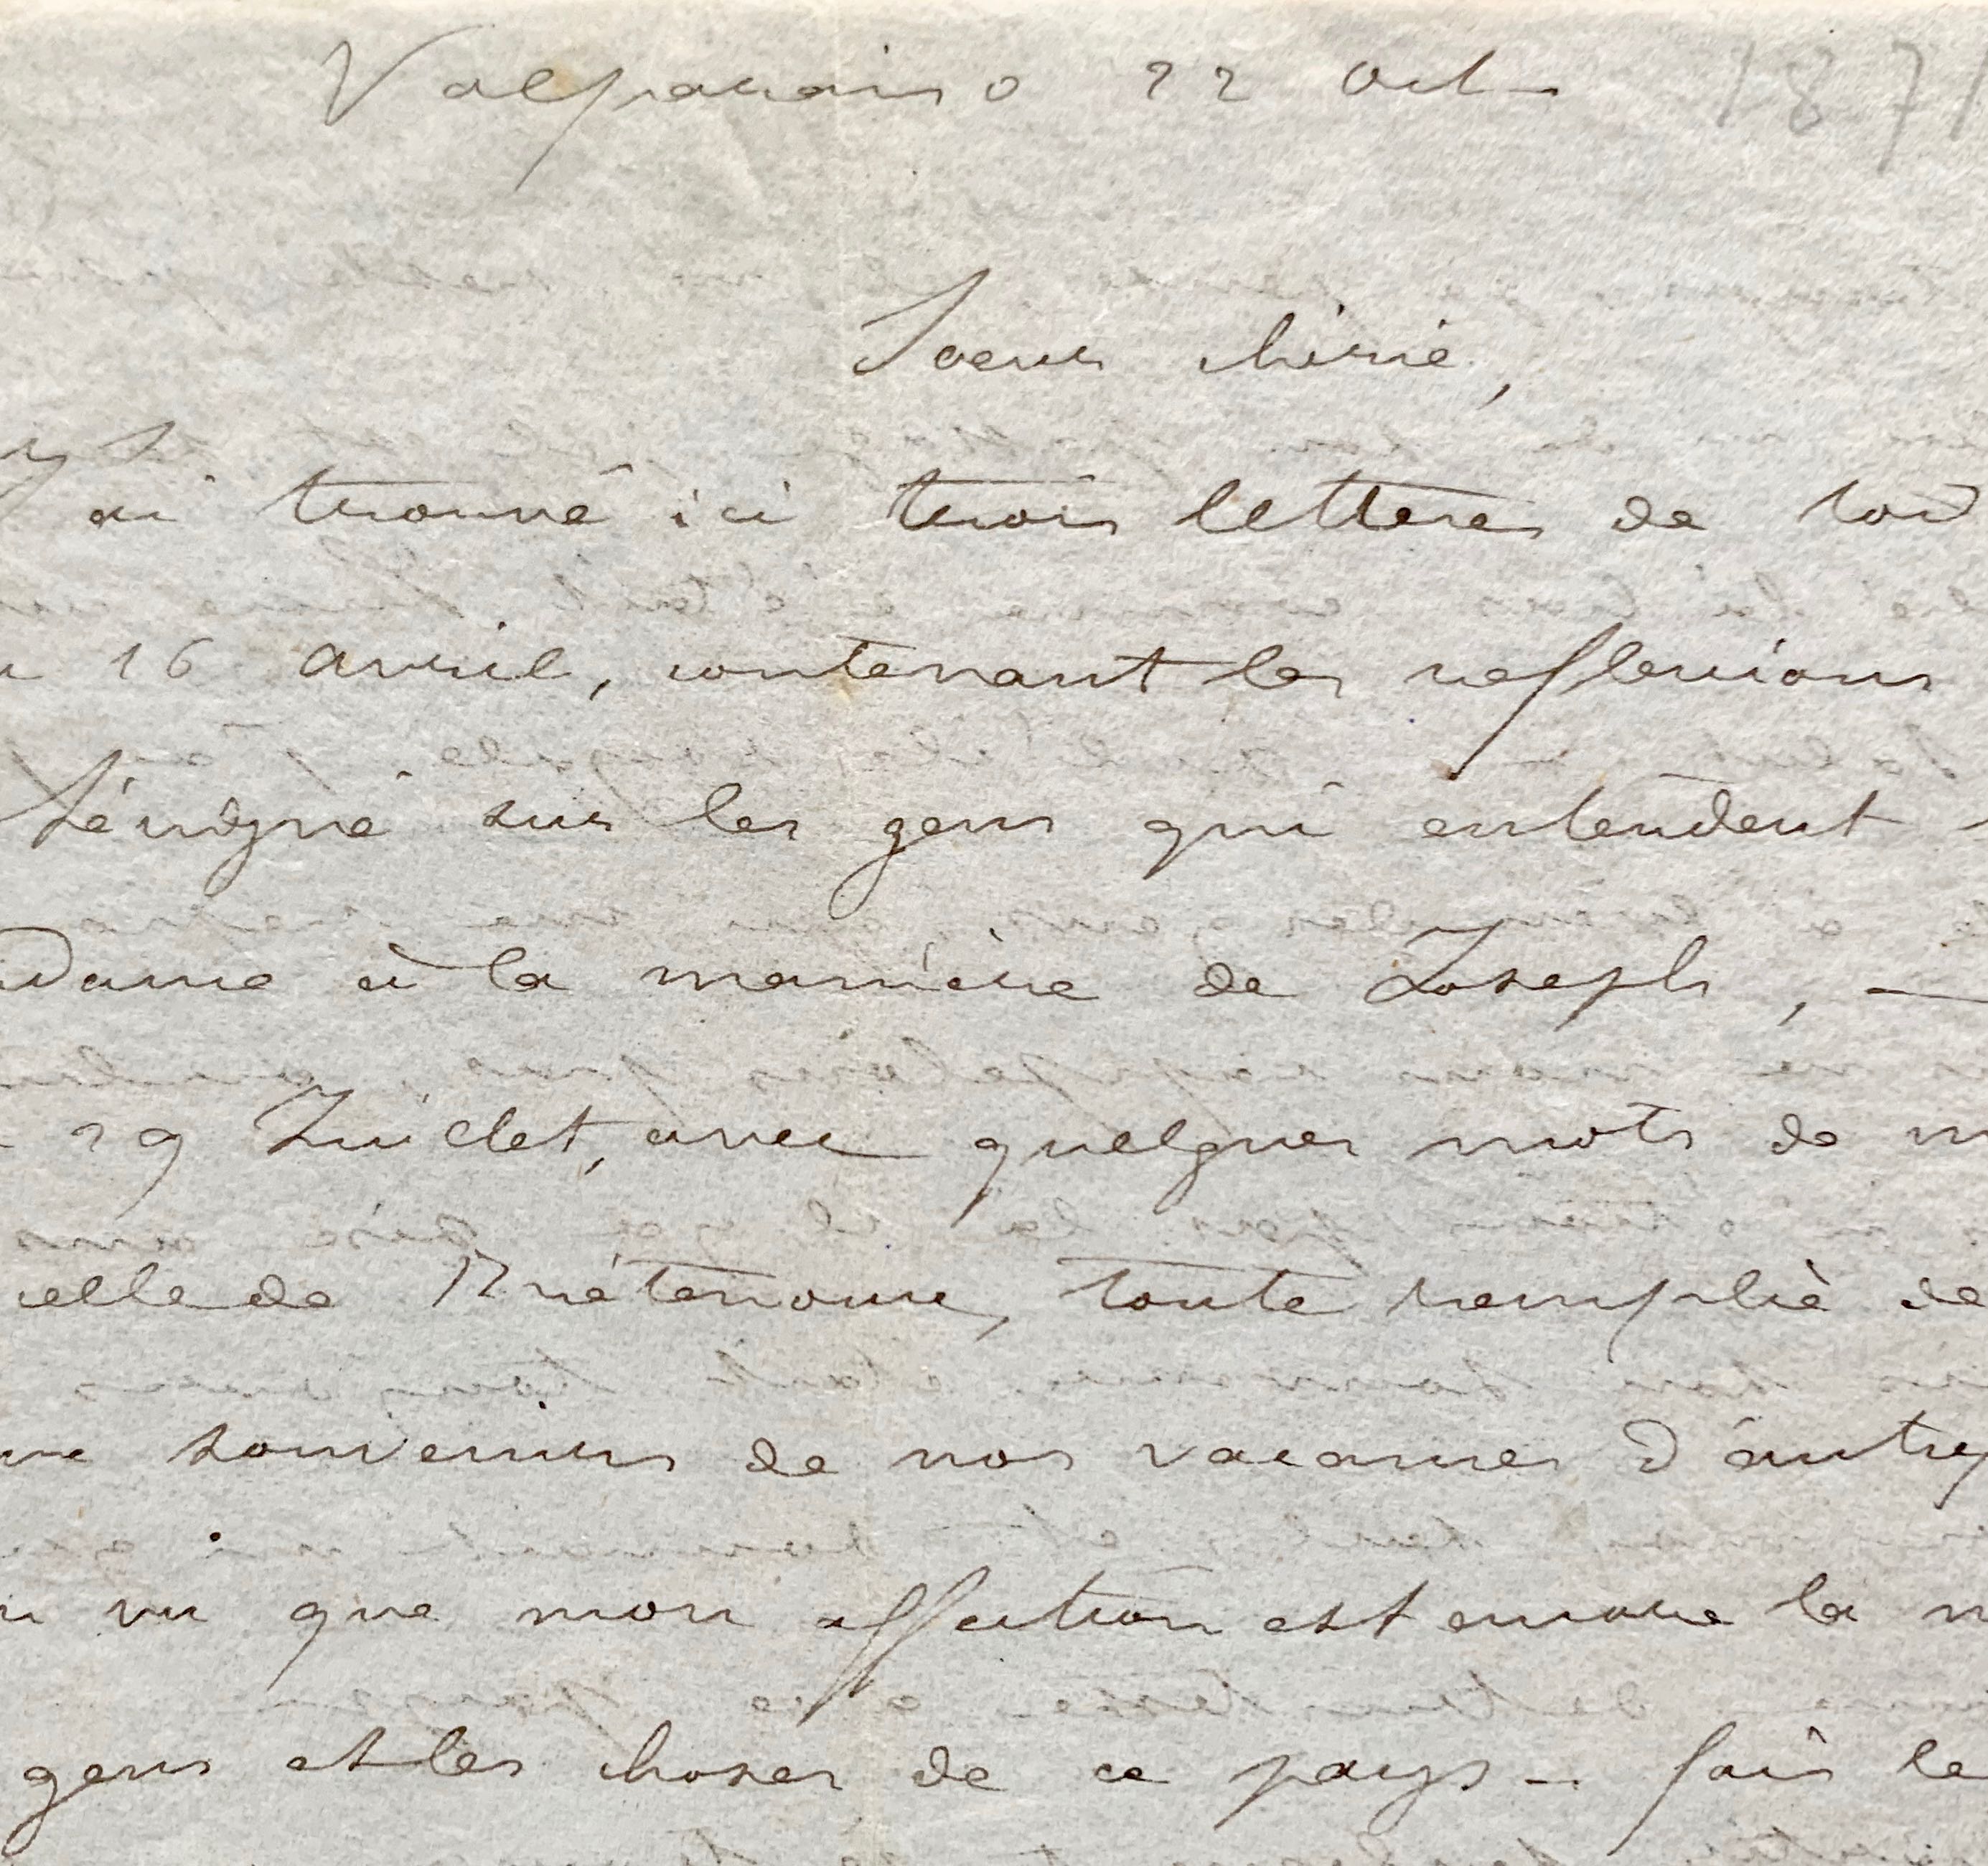 Valparaiso 22 Oct - 187
Soeur chérie,
J'ai trouvé ici trois lettres de toi
16 avril, contenant les reflexions
Sévigné sur les gens qui entendent
dame à la manière de Joseph, —
29 Juillet, avec quelques mots de
celle de toute remplie de
souvenirs de nos vacances d'autre
vu que mon affection est encore la
gens et les choses de ce pays - fais le